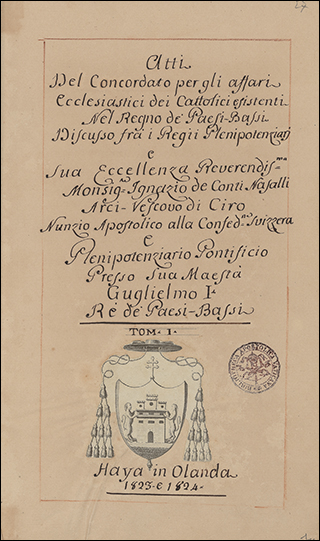 27
Atti
Del Concordato per gli affari
Ecclesiastici dei Cattolici esistenti
Nel Regno de' Paesi-Bassi
Discusso frà i Regii Plenipotenziarj
e
Sua Eccellenza Reverendis-ma
Monsig.r Ignazio de Conti Nasalli
Arci-Vescovo di Ciro
Nunzio Apostolico alla Confed.ne Svizzera
e
Plenipotenziario Pontificio
Presso Sua Maestà
Guglielmo I.
Re de' Paesi-Bassi
TOM. I.
Haya in Olanda
1823 e 1824.